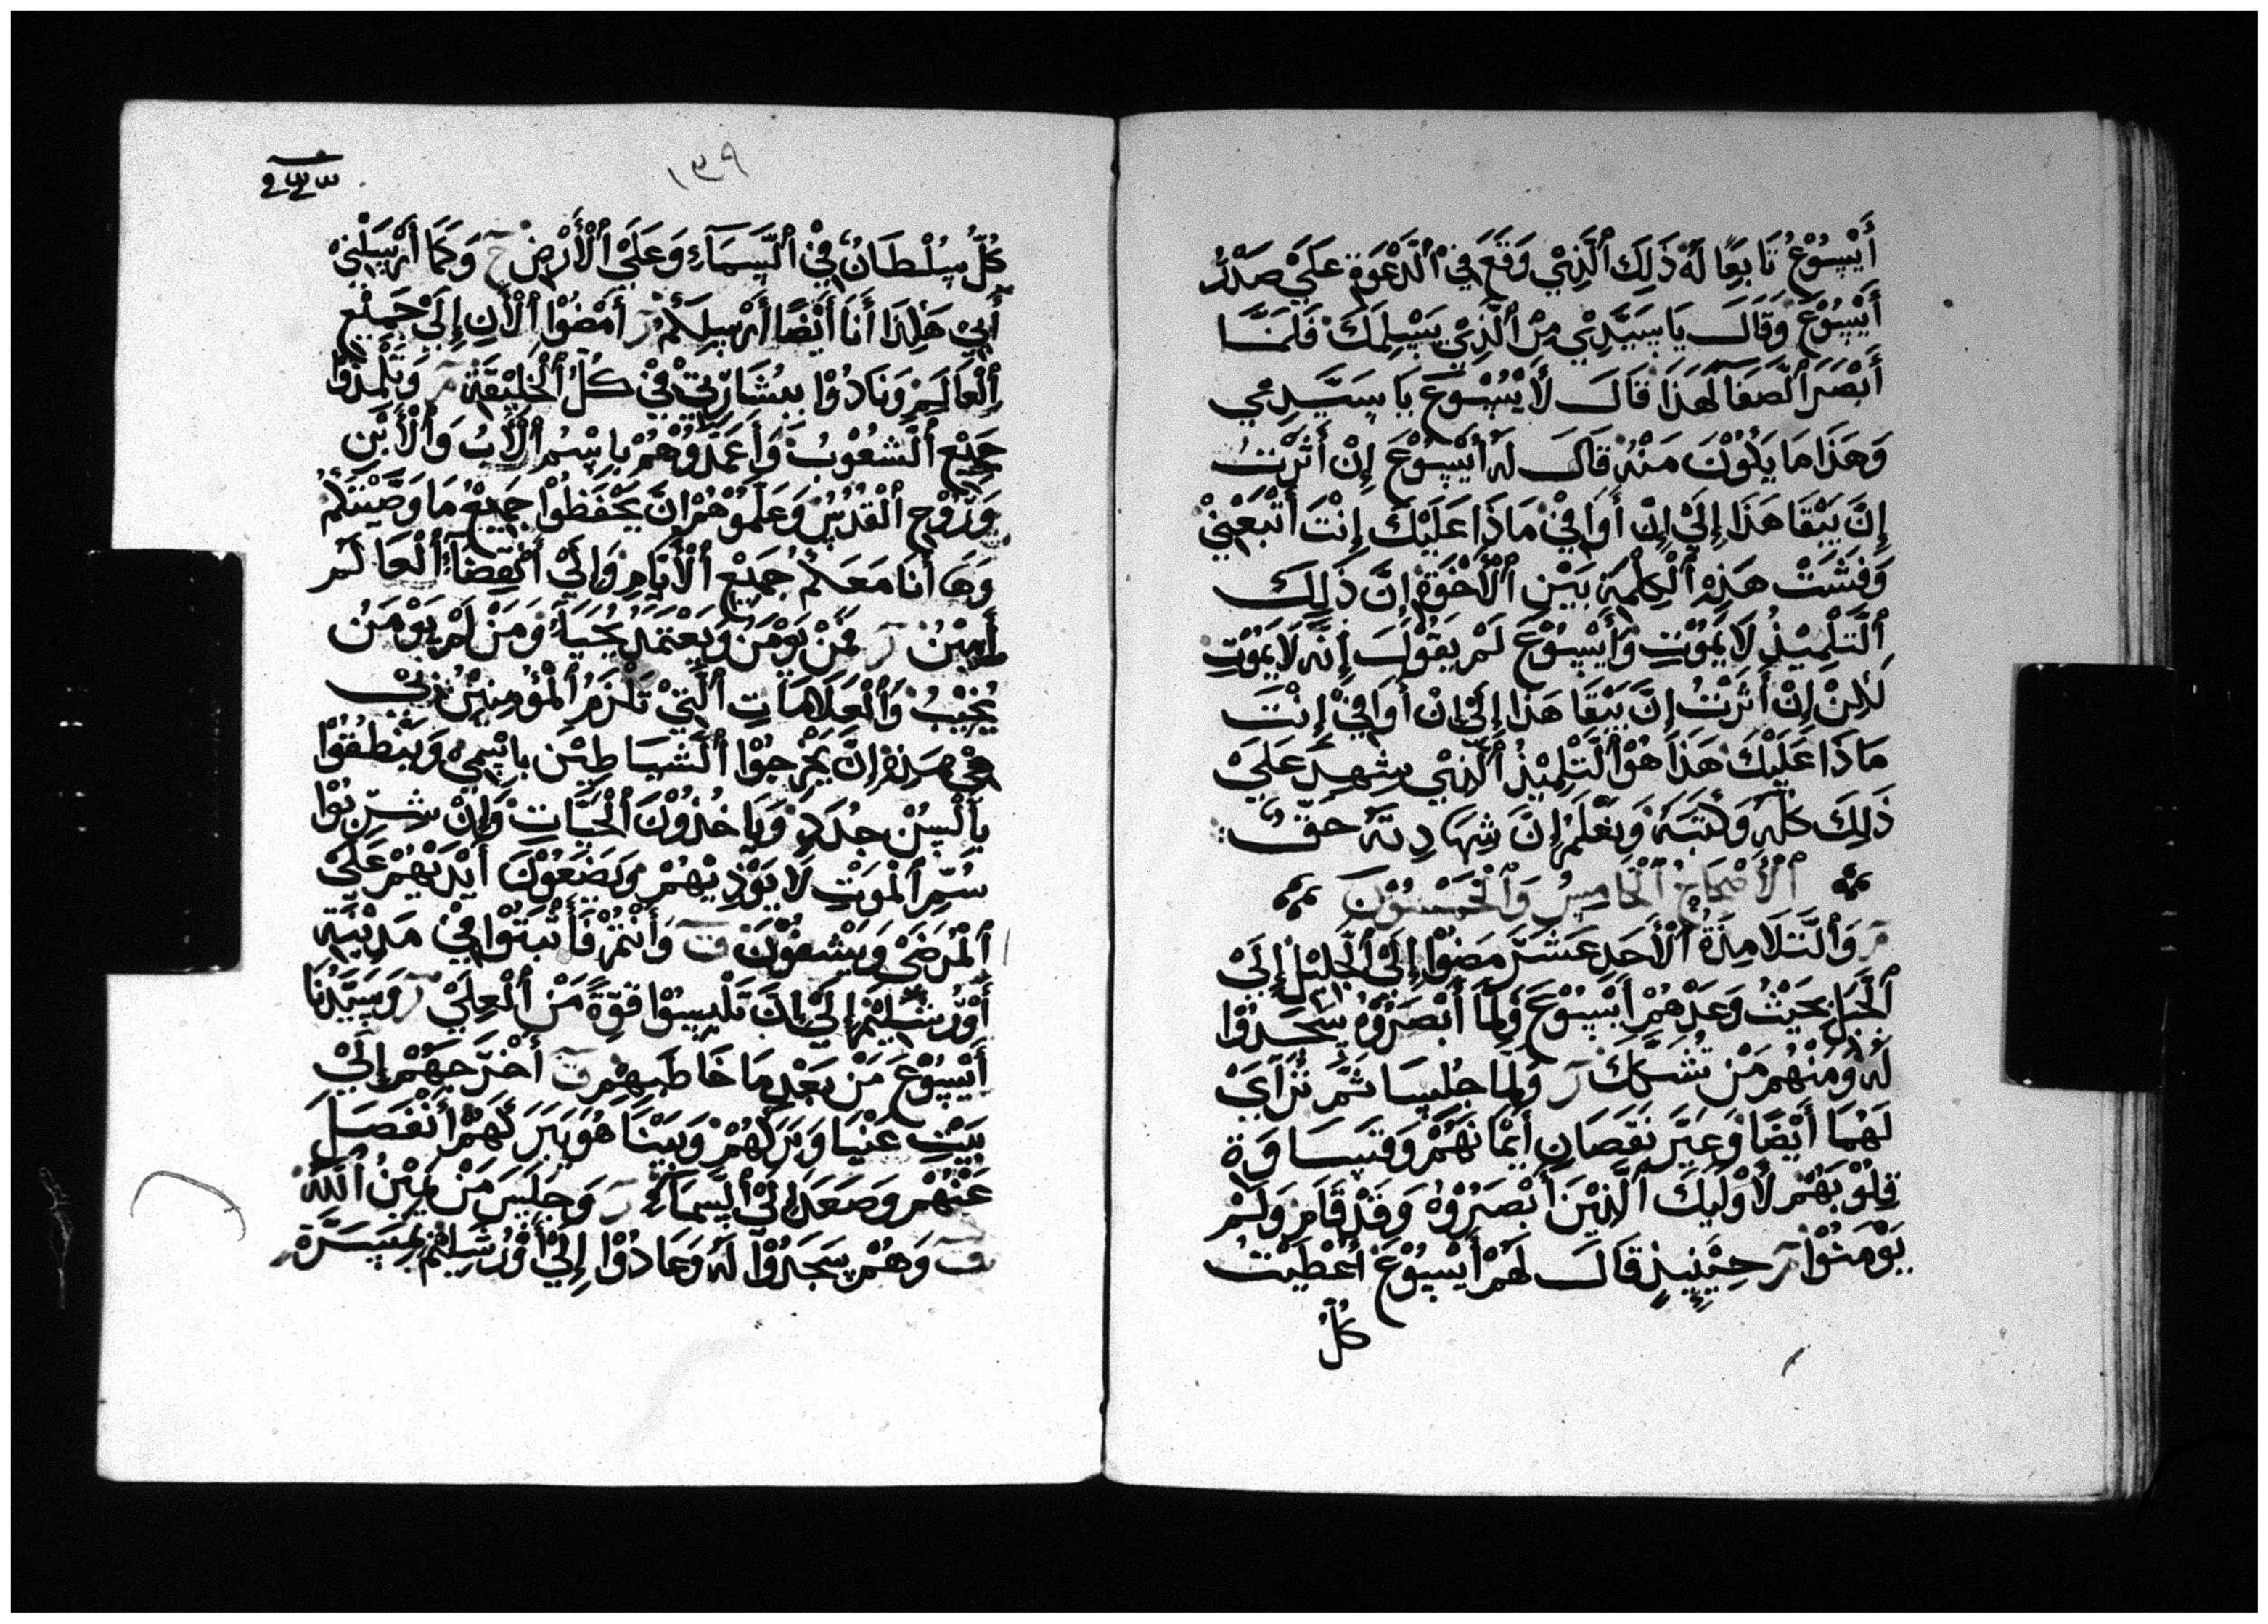 أَيْسُوْعُ تَابِعًا لَهُ ذَلِكَ ٱلَّذِيْ وَقَعَ فِيْ ٱلدَّعْوَةِ عَلَيْ صَدْرُ
أَيْسُوْعَ وَقَالَ يَا سَيِّدِيْ مِنْ ٱلَّذِيْ يَسْلِمَكَ فَلَمَّا
أَبْصَرَ ٱلصَّفَا لَهَذَا قَالَ لَأَيْسُوْعَ يَا سَيَّدِيْ
وَهَذَا مَا يَكُوْنَ مَنْهُ قَالَ لَهُ أَيْسُوْعَ إِنْ أَثَرْتُ
إِنَّ يَبْقَا هَذَا إِلَيْ إِنْ أَوَافِيْ مَاذَا عَلَيْكَ إِنْتَ أَتْبَعْنِيْ
وَفَشَتْ هَذِهِ ٱلْكِلْمَةِ بَيْنِ ٱلْأُخْوَةِ إِنَّ ذَلِكَ
ٱلتَّلْمِيْذُ لَا يَمُوْتِ وَأَيْسُوْعَ لَمْ يَقُوْلَ إِنَّهُ لَا يَمُوْتِ
لَكِنْ إِنْ أَثَرْتُ إِنَّ يَبْقَا هَذَا إِلَيْ إِنْ أَوَافِيْ إِنْتَ
مَاذَا عَلَيْكَ هَذَا هُوْ ٱلتَّلْمِيْذُ ٱلَّذِيْ شَهِدَ عَلَيْ
ذَلِكَ كُلَّهُ وَكَتَبَهُ وَنَعْلَمْ إِنَّ شِهَادِتَهُ حَقٌّ
ٱلْأَصْحَاحُ ٱلْخَامِسُ وَٱلْخَمْسُوْنَ
ر وَٱلتَّلَامِذَةُ ٱلْأَحَدِ عَشَرَ مَضُوْا إِلَيْ ٱلْجَلِيْلِ إِلَيْ
ٱلْجَبَلِ بَحَيْثُ وَعَدْهُمْ أَيْسُوْعَ وَلَمَّا أَبْصَرُوْهُ سَجَدُوْا
لَهُ وَمَنْهُمْ مَنْ تُشَكَّكْ ر وَلَمَّا جُلِسَا ثُمَّ تُرَآىَ
لَهُمَا أَيْضًا وَعَيَّر نَقَصَانِ أَيْمَانَهُمْ وَقَسَاوَةِ
قِلُوْبَهُمْ لَأُوْلَيْكَ ٱلَّذِيْنَ أَبْصَرُوْهُ وَقَدْ قَامَ وَلَمْ
يَوْمَنُوْا ر حِيْنِيِذٍ قَالَ لَهُمْ أَيْسُوْعَ أُعْطَيْتُ
كُلَّ
١٣٩
كُلَّ سُلْطَانٌ فِيْ ٱلسَّمَآءِ وَعَلَيْ ٱلْأَرْضِ ح وَكَمَا أَرْسَلَنِيْ
أَبِيْ هَكَذَا أَنَا أَيْضًا أَرْسِلَكُمْ ر أَمْضُوْا ٱلْأَنِ إِلَيْ جَمِيْعِ
ٱلْعَالَمِ وَنَادُوْا بِبُشَارَتِيْ فِيْ كُلُّ ٱلْخَلِيْقَةِ ر وَتَلْمِذُوْا
جَمِيْع ٱلشُعُوْبُ وَأَعَمِّدُوْهُمْ بِاسْمُ ٱلْأَبُ وَٱلْأَبْنِ
وَرُوْحِ ٱلْقُدُسْ وَعَلِّمُوْهُمْ إِنَّ يَحْفَظُوْا جَمِيْعُ مَا وَصَّيْتَكُمْ
وَهَا أَنَا مَعَكُمْ جَمِيْعِ ٱلْأَيَّامِ وَإِلَيْ أَنْقِضَآءُ ٱلْعَالَمْ
أَمِيْنُ ر فَمَنْ يَوْمَنُ وَيَعْتَمَدُ يُحْيَآءُ وَمَنْ لَمْ يَوْمَنُ
يُخَيْبُ وَٱلْعَلَامَاتِ ٱلَّتِيْ تَلْزَمُ ٱلْمُؤْمِنِيْنَ بِيْ
هِيْ هَذِهْ إِنَّ يَخْرَجُوْا ٱلشَّيَاطِيْنَ بِاسْمِيْ وَيَنْطُقُوْا
بِأَلْسِنْ جُدَدٍ وَيَاخُذُوْنَ ٱلْحَيَّاتِ وَإِنْ شَرِبُوْا
سُمِّ ٱلْمَوْتِ لَا يَوْذِيْهُمْ وَيَضَعُوْنَ أَيْدَيْهُمْ عَلَيْ
ٱلْمَرْضَيْ وَيَشْفُوْنَ ق وَأَنْتُمْ فَأَثْبَتُوْا فِيْ مَدِيْنَةِ
أَوْرُشَلِيْمَ إِلَيْ إِنَّ تَلْبِسُوْا قُوَّةً مَنْ ٱلْعِلِيْ ر وَسَيَّدُنَا
أَيْسُوْعَ مَنْ بَعْدِ مَا خَاطَبَهُمْ ق أَخْرَجَهُمْ إِلَيْ
بَيْتِ عَنْيَا وَبَرَكَهُمْ وَبَيْنَا هُوَ يَبَرَكَهُمْ أَنْفَصَلَ
عَنْهُمْ وَصَعَدَ إِلَيْ ٱلسَّمَآءِ ر وَجَلَسَ مَنْ يَمِيْنُ ٱللّٰه
ق وَهُمْ سَجَدُوْا لَهُ وَعَادُوْا إِلَيْ أَوْرُشَلِيْمْ بِمَسَرَّةٍ